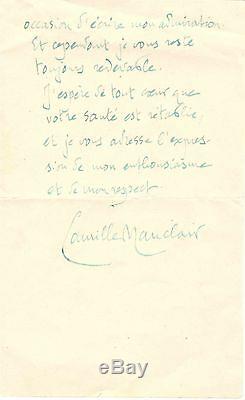 occasion d'écrire mon admiration.
Et cependant je vous reste
toujours redevable.
J'espère de tout cœur que
votre santé est rétablie,
et je vous adresse l'expres-
sion de mon enthousiasme
et de mon respect
Camille Mauclair
ebay